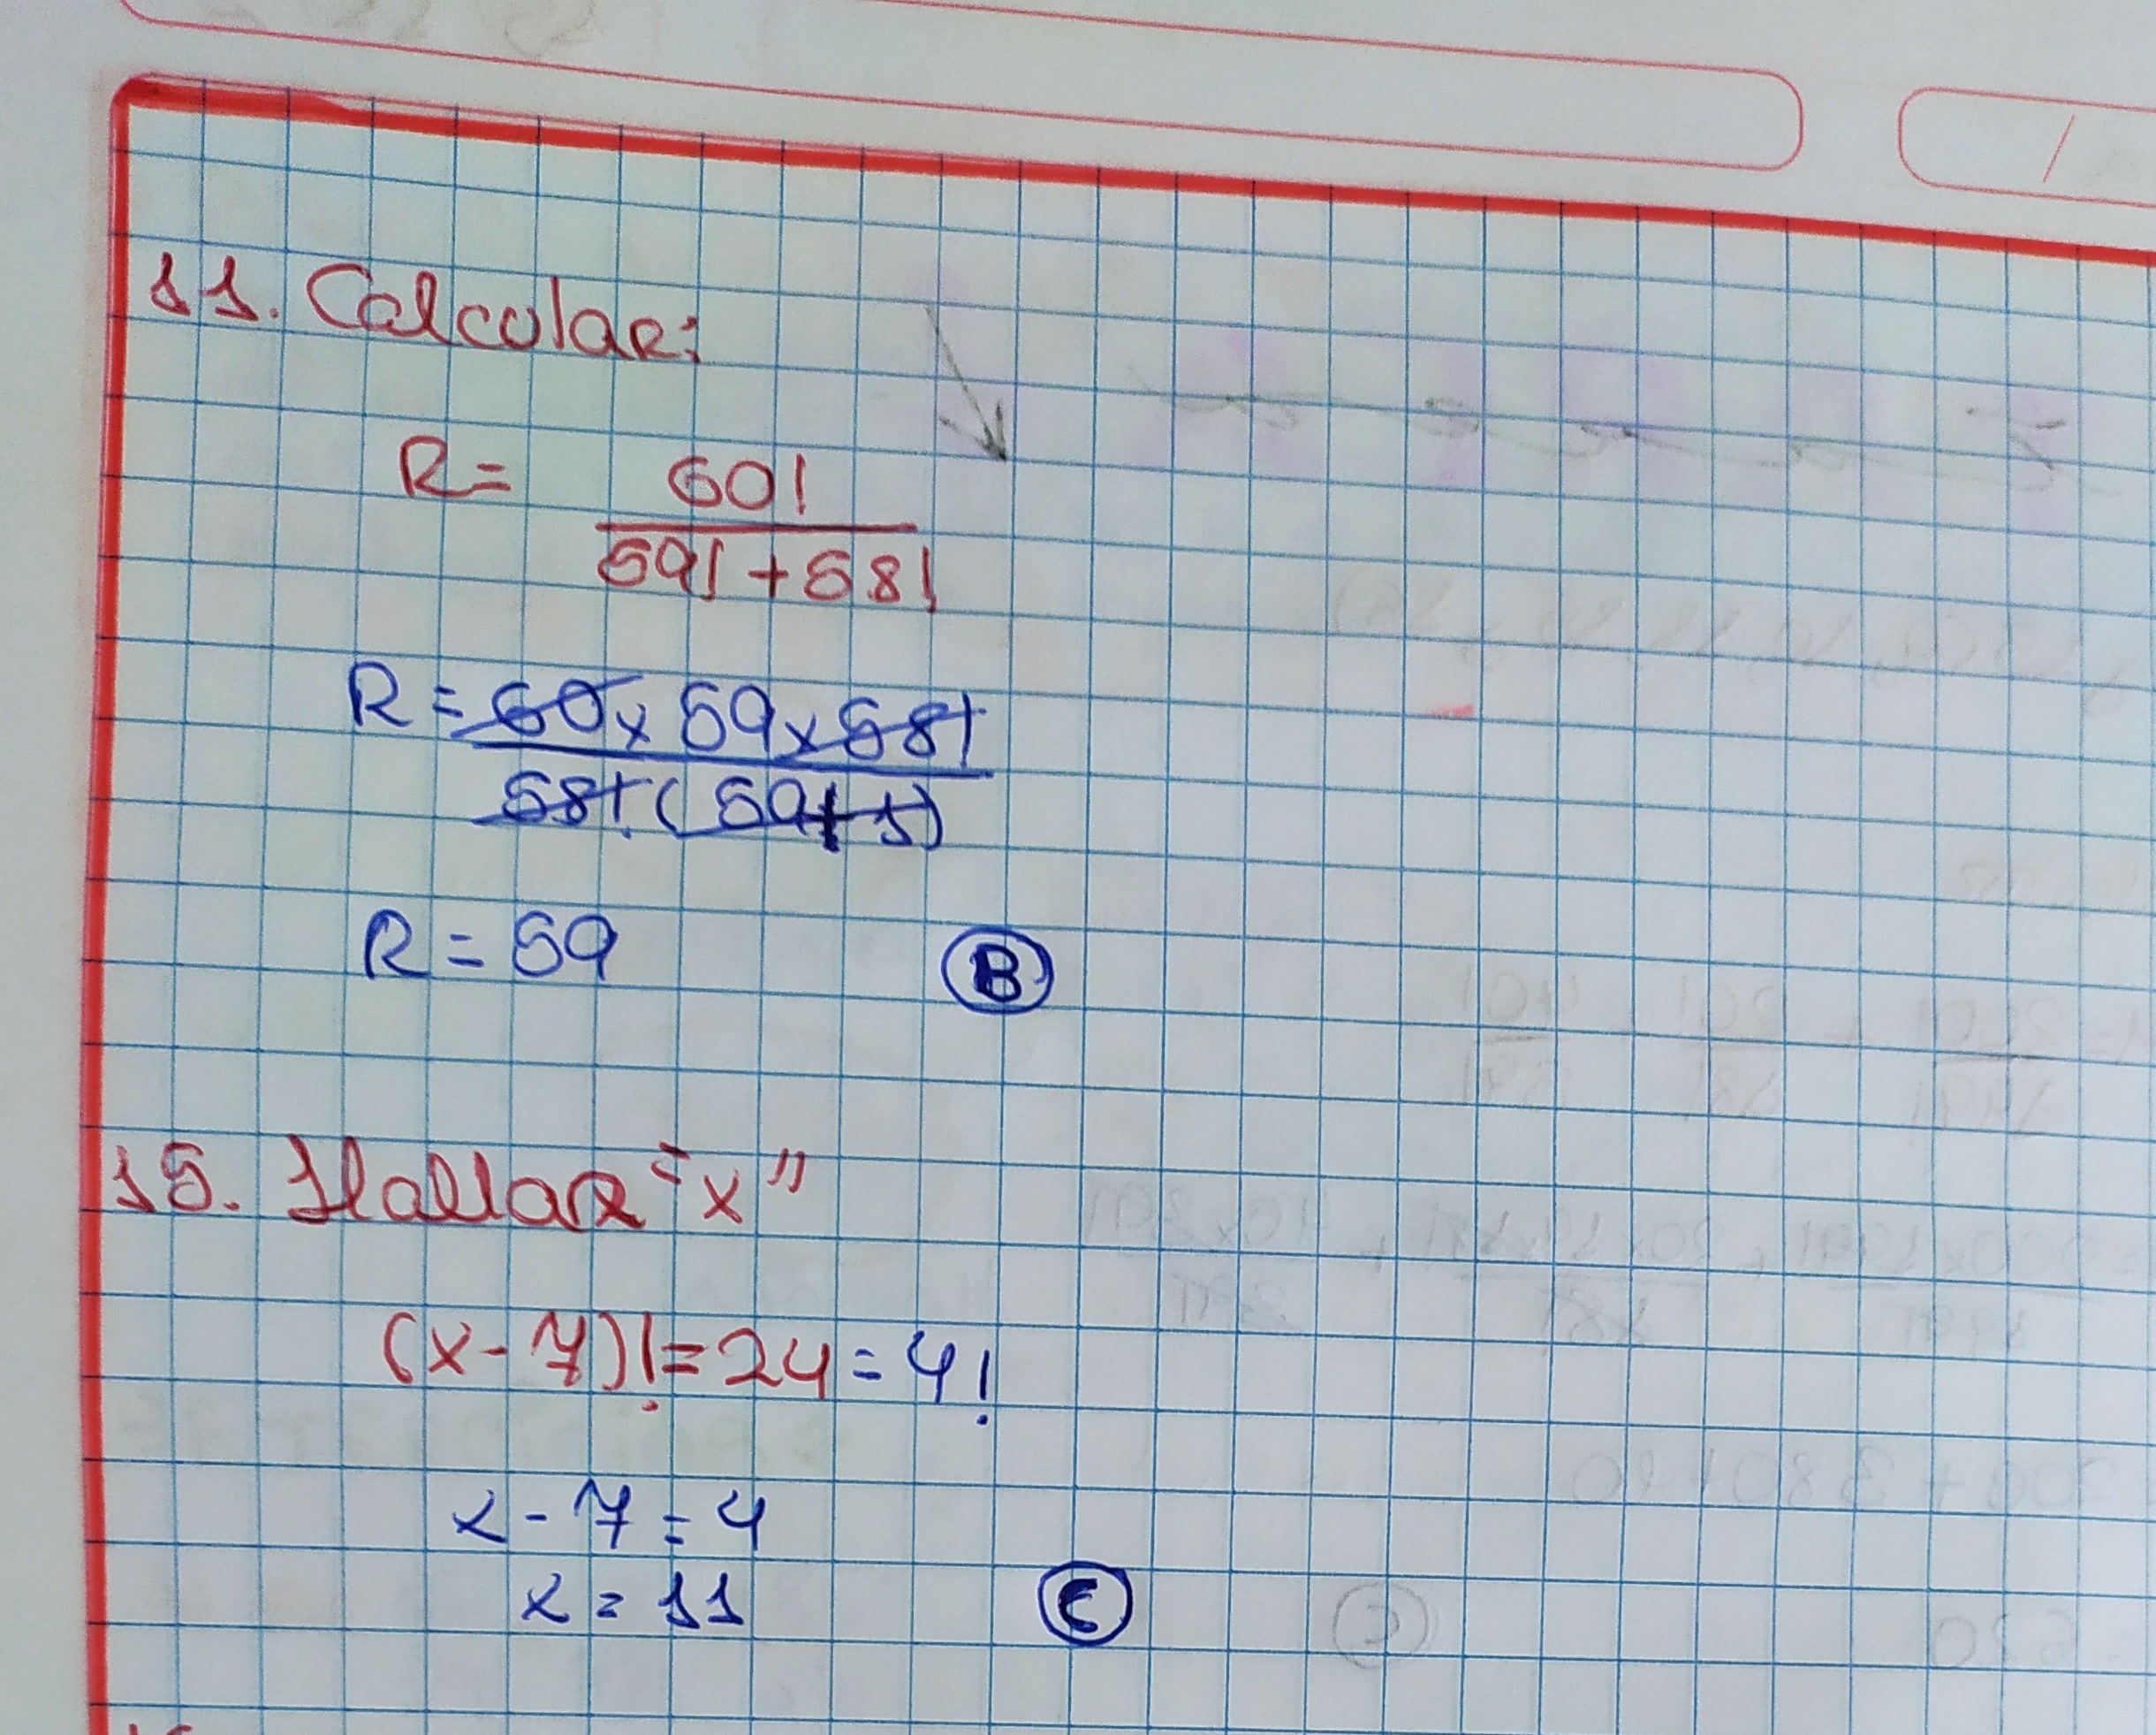 11. Calcular:
R = 60!
59! + 58!
R = 60 x 59 x 58!
58! ( 59 + 1 )
R = 59 B
15. Hallar "x"
(x - 7)! = 24 = 4!
x - 7 = 4
x = 11 C